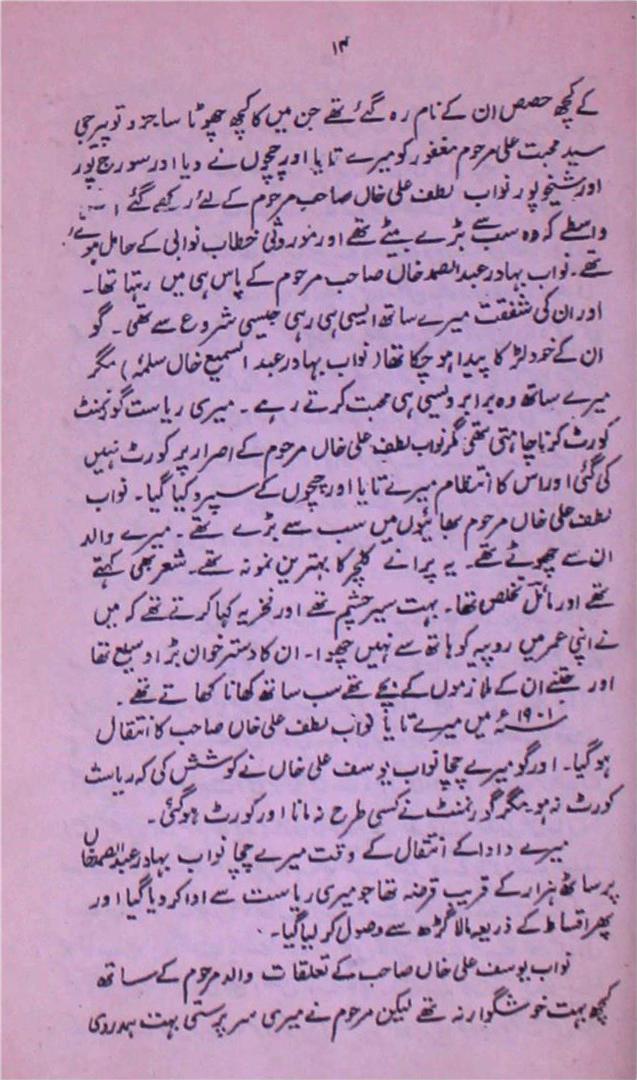 ۱۴
کے کچھ حصص ان کے نام رہ گئے تھے جن میں کا کچھ چھوٹا سا جزو تو پیرجی
سید محبت علی مرحوم مغفور کو میرے تایا اور چچوں نے دیا اور سورج پور
اور شیخو پور نواب لطف علی خاں صاحب مرحوم کے لئے رکھے گئے
واسطے کہ وہ سب سے بڑے بیٹے تھے اور موروثی خطاب نوابی کے حامل ہوئے
تھے۔ نواب بہادر عبدالصمد خاں صاحب مرحوم کے پاس ہی میں رہتا تھا۔
اور ان کی شفقت میرے ساتھ ایسی ہی رہی جیسی شروع سے تھی۔ گو
ان کے خود لڑکا پیدا ہو چکا تھا (نواب بہادر عبدالسمیع خاں سلمہٗ) مگر
میرے ساتھ وہ برابر ویسی ہی محبت کرتے رہے۔ میری ریاست گورنمنٹ
کورٹ کرنا چاہتی تھی مگر نواب لطف علی خاں مرحوم کے اصرار پر کورٹ نہیں
کی گئی اور اس کا انتظام میرے تایا اور چچوں کے سپرد کیا گیا۔ نواب
لطف علی خاں مرحوم بھائیوں میں سب سے بڑے تھے۔ میرے والد
ان سے چھوٹے تھے۔ یہ پرانے کلچر کا بہترین نمونہ تھے۔ شعر بھی کہتے
تھے اور مائل تخلص تھا۔ بہت سیر چشم تھے اور فخریہ کہا کرتے تھے کہ میں
نے اپنی عمر میں روپیہ کو ہاتھ سے نہیں چھوا۔ ان کا دسترخوان بڑا وسیع تھا
اور جتنے ان کے ملازموں کے بچے تھے سب ساتھ کھانا کھاتے تھے۔
۱۹۰۱ء میں میرے تایا نواب لطف علی خاں صاحب کا انتقال
ہوگیا۔ اور گو میرے چچا نواب یوسف علی خاں نے کوشش کی کہ ریاست
کورٹ نہ ہو مگر گورنمنٹ نے کسی طرح نہ مانا اور کورٹ ہوگئی۔
میرے دادا کے انتقال کے وقت میرے چچا نواب بہادر عبدالصمد خاں
پر ساٹھ ہزار کے قریب قرضہ تھا جو میری ریاست سے ادا کر دیا گیا اور
پھر اقساط کے ذریعہ مالاگڑھ سے وصول کر لیا گیا۔
نواب یوسف علی خاں صاحب کے تعلقات والد مرحوم کے ساتھ
کچھ بہت خوشگوار نہ تھے لیکن مرحوم نے میری سرپرستی بہت ہمدردی